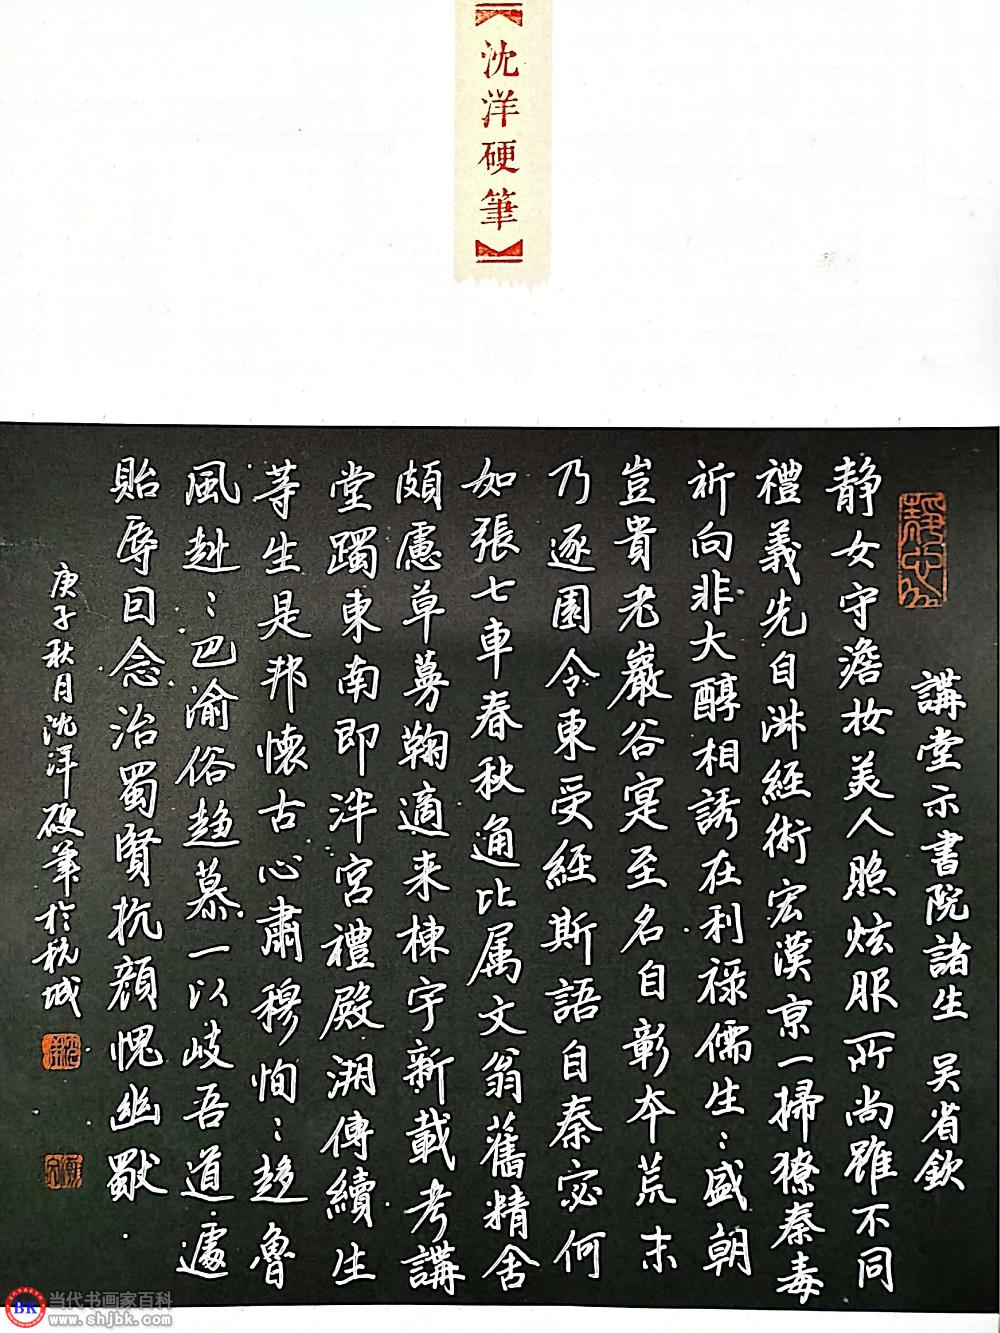 沈洋硬筆
講堂示書院諸生 吴省欽
静女守澹妆美人照炫服所尚雖不同
禮義先自淋經術宏漢京一掃獠秦毒
祈向非大醇相誘在利禄儒生:盛朝
豈貴老巖谷寔至名自彰本荒末
乃逐園令東受經斯語自秦宓何
如張七車春秋通比属文翁舊精舍
頗慮草蒡鞠適来棟宇新載考講
堂躅東南即泮宫禮殿溯傳續生
等生是邦懷古心肅穆恂:趍魯
風赳:巴渝俗趋慕一以歧吾道遽
貽辱曰念治蜀賢抗顔愧幽歜
庚子秋月沈洋硬筆於杭城
当代书画家百科
www.shjbk.com
BK